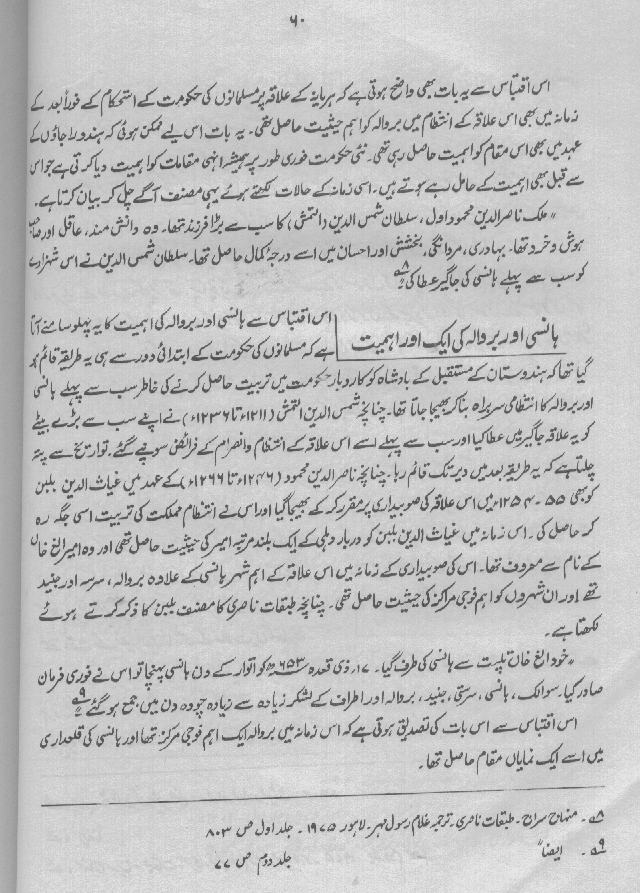 ۶۰
اس اقتباس سے یہ بات بھی واضح ہوتی ہے کہ ہریانہ کے علاقہ پر مسلمانوں کی حکومت کے استحکام کے فوراً بعد کے
زمانہ میں بھی اس علاقہ کے انتظام میں بروالہ کو اہم حیثیت حاصل تھی۔ یہ بات اس لیے ممکن ہوئی کہ ہندو راجاؤں کے
عہد میں بھی اس مقام کو اہمیت حاصل رہی تھی۔ نئی حکومت فوری طور پر ہمیشہ انہی مقامات کو اہمیت دیا کرتی ہے جو اس
سے قبل بھی اہمیت کے حامل رہے ہوتے ہیں۔ اسی زمانہ کے حالات لکھتے ہوئے یہی مصنف آگے چل کر بیان کرتا ہے۔
"ملک ناصر الدین محمود اول، سلطان شمس الدین (التمش) کا سب سے بڑا فرزند تھا۔ وہ دانش مند، عاقل اور صاحب
ہوش و خرد تھا۔ بہادری، مردانگی، بخشش اور احسان میں اسے درجۂ کمال حاصل تھا۔ سلطان شمس الدین نے اس شہزادے
کو سب سے پہلے ہانسی کی جاگیر عطا کی" ۸؎
ہانسی اور بروالہ کی ایک اور اہمیت
اس اقتباس سے ہانسی اور بروالہ کی اہمیت کا یہ پہلو سامنے آتا
ہے کہ مسلمانوں کی حکومت کے ابتدائی دور سے ہی یہ طریقہ قائم ہو
گیا تھا کہ ہندوستان کے مستقبل کے بادشاہ کو کاروبار حکومت میں تربیت حاصل کرنے کی خاطر سب سے پہلے ہانسی
اور بروالہ کا انتظامی سربراہ بنا کر بھیجا جاتا تھا۔ چنانچہ شمس الدین التمش (۱۲۱۱ء تا ۱۲۳۶ء) نے اپنے سب سے بڑے بیٹے
کو یہ علاقہ جاگیر میں عطا کیا اور سب سے پہلے اسے اس علاقہ کے انتظام و انصرام کے فرائض سونپے گئے۔ تواریخ سے پتہ
چلتا ہے کہ یہ طریقہ بعد میں دیر تک قائم رہا۔ چنانچہ ناصر الدین محمود (۱۲۴۶ء تا ۱۲۶۶ء) کے عہد میں غیاث الدین بلبن
کو بھی ۵۵۔۱۲۵۴ء میں اس علاقہ کی صوبیداری پر مقرر کر کے بھیجا گیا اور اس نے انتظام مملکت کی تربیت اسی جگہ رہ
کر حاصل کی۔ اس زمانہ میں غیاث الدین بلبن کو دربار دہلی کے ایک بلند مرتبہ امیر کی حیثیت حاصل تھی اور وہ امیر الغ خاں
کے نام سے معروف تھا۔ اس کی صوبیداری کے زمانہ میں اس علاقہ کے اہم شہر ہانسی کے علاوہ بروالہ، سرسہ اور جنید
تھے اور ان شہروں کو اہم فوجی مراکز کی حیثیت حاصل تھی۔ چنانچہ طبقات ناصری کا مصنف بلبن کا ذکر کرتے ہوئے
لکھتا ہے۔
"خود الغ خاں تلپت سے ہانسی کی طرف گیا۔ ۱۷؍ ذی قعدہ ۶۵۳ھ کو اتوار کے دن ہانسی پہنچا تو اس نے فوری فرمان
صادر کیا۔ سوالک، ہانسی، سرستی، جنید، بروالہ اور اطراف کے لشکر زیادہ سے زیادہ چودہ دن میں جمع ہو گئے" ۹؎
اس اقتباس سے اس بات کی تصدیق ہوتی ہے کہ اس زمانہ میں بروالہ ایک اہم فوجی مرکز تھا اور ہانسی کی قلعداری
میں اسے ایک نمایاں مقام حاصل تھا۔
۸؎۔ منہاج سراج۔ طبقات ناصری۔ ترجمہ غلام رسول مہر۔ لاہور ۱۹۷۵۔ جلد اول ص ۸۰۳
۹؎۔ ایضاً" جلد دوم ص ۷۷